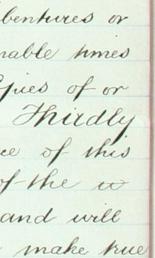 bentures or
nable times
pies of or
Thirdly
ce of this
of the w
and will
make true